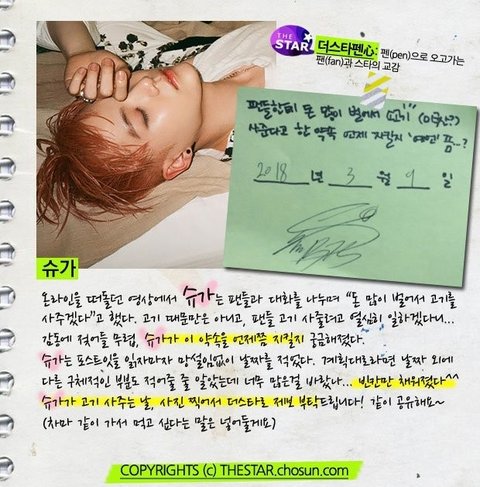 THE
STAR
더스타펜心: 팬(pen)으로 오고가는
팬(fan)과 스타의 교감
팬들한테 돈 많이 벌어서 고기
사준다고 한 약속 언제 지킬지
2018 년 3 월 9 일
슈가
온라인을 떠돌던 영상에서 슈가는 팬들과 대화를 나누며 “돈 많이 벌어서 고기를
사주겠다”고 했다. 고기 때문만은 아니고, 팬들 고기 사줄려고 열심히 일하겠다니...
감동에 젖어들 무렵, 슈가가 이 약속을 언제쯤 지킬지 궁금해졌다.
슈가는 포스트잇을 읽자마자 망설임없이 날짜를 적었다. 계획대로라면 날짜 외에
다른 구체적인 부분도 적어줄 줄 알았는데 너무 많은걸 바랐나... 빈칸만 채워졌다^^
슈가가 고기 사주는 날, 사진 찍어서 더스타로 제보 부탁드립니다! 같이 공유해요~
(차마 같이 가서 먹고 싶다는 말은 넣어둘게요)
COPYRIGHTS (c) THESTAR.chosun.com